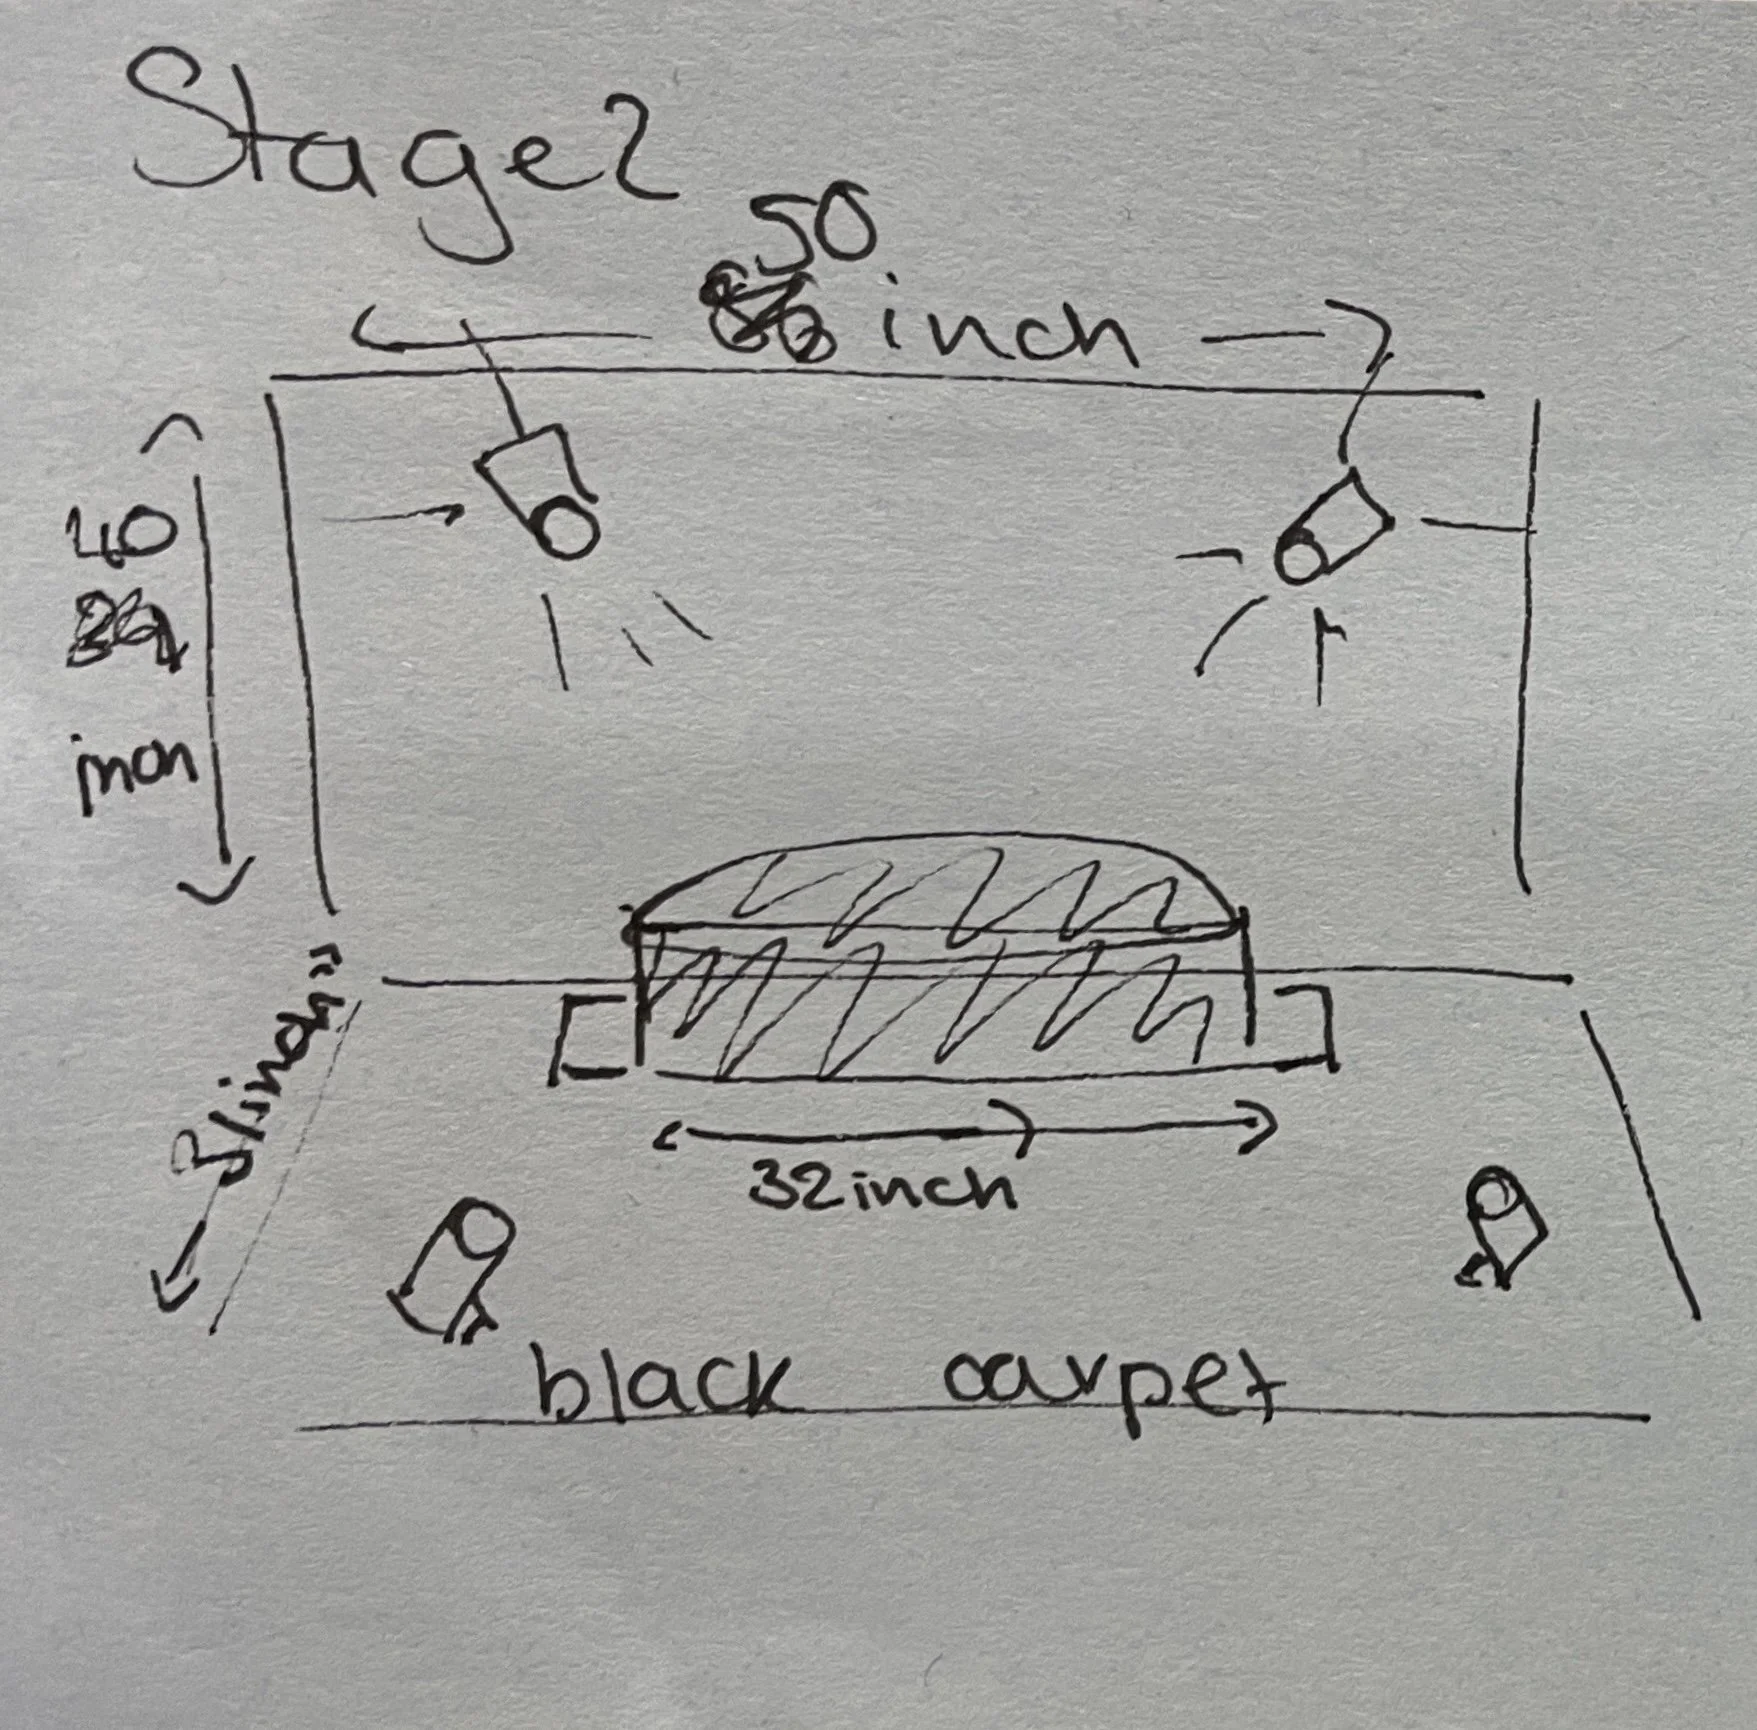 Stage2
50
inch
40
inch
32inch
black carpet